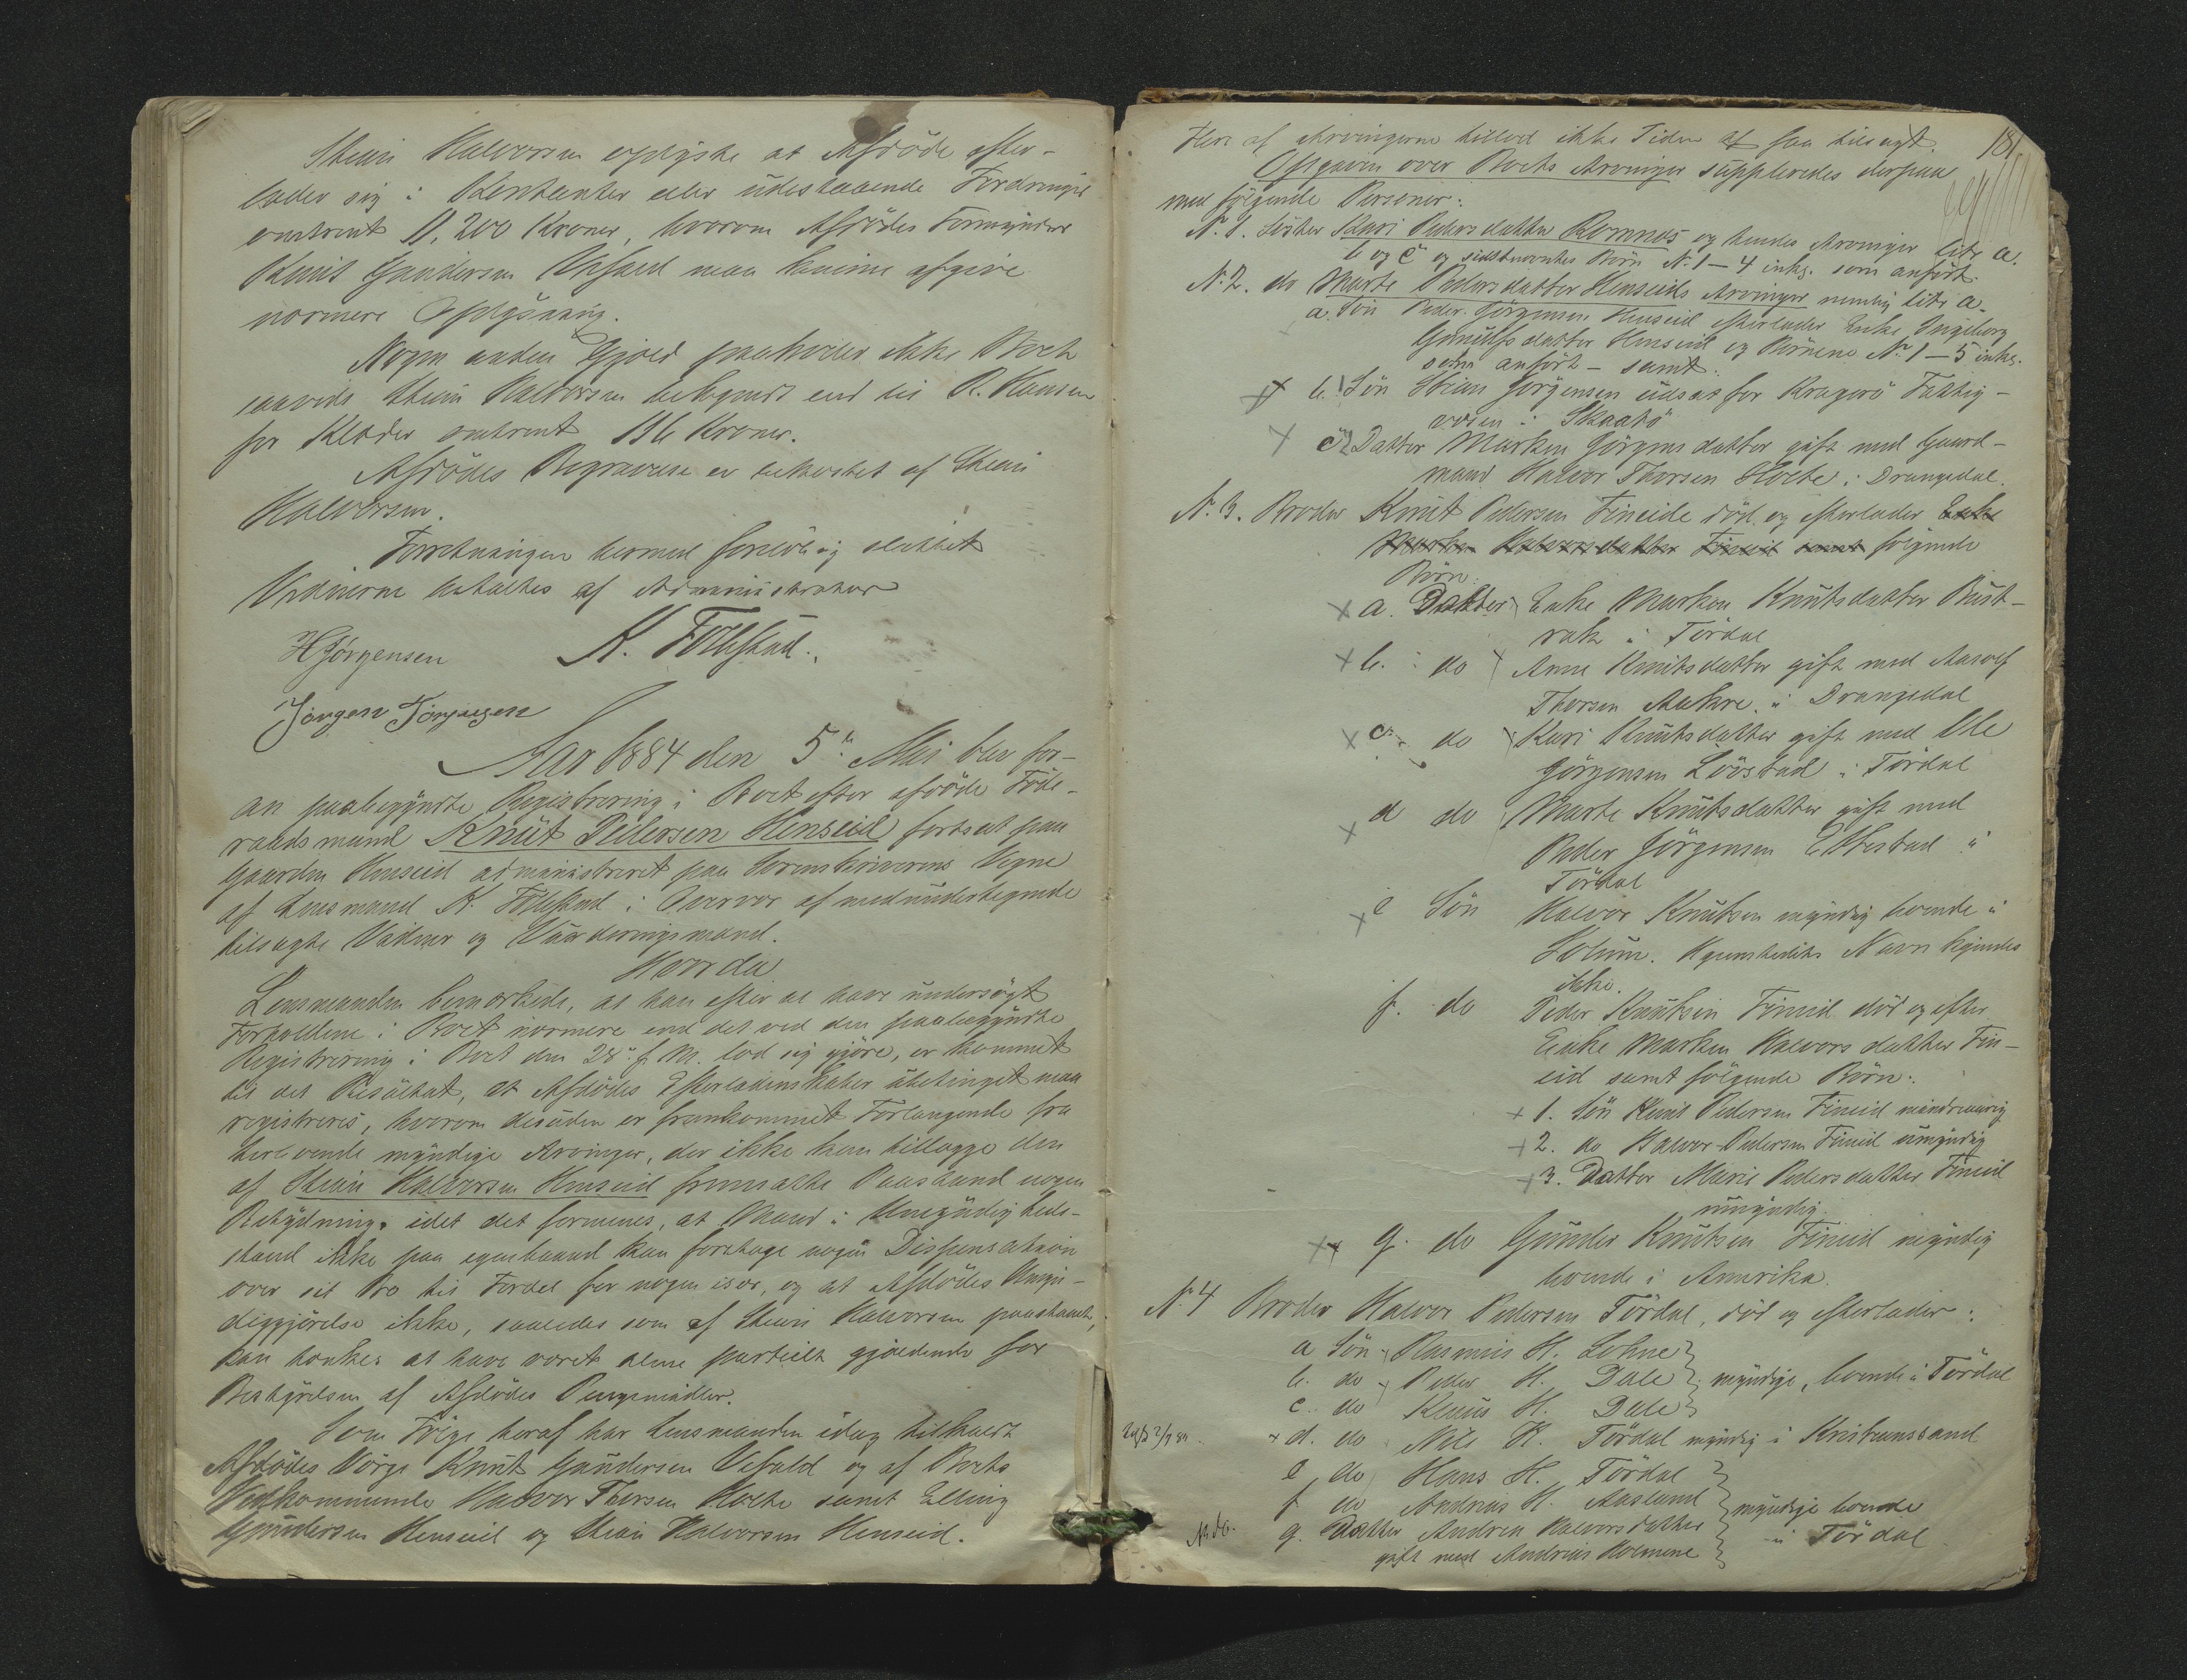 Steian Halvorsen oplyste at Afdöde efter-
lader sig i Kontanter eller udestaaende Fordringer
omtrent 11,200 Kroner, hvorom Afdödes Formynder
Knut Gundersen Vefald maa kunne afgive
nærmere Oplysning.
Nogen anden Gjæld paahviler ikke Boet
saavidt Steian Halvorsen bekjendt end til R. Hansen
for Klæder omtrent 116 Kroner.
Afdödes Begravelse er bekostet af Steian
Halvorsen.
Forretningen hermed forelöbig sluttet
Vidnerne betaltes af Administrator
HJörgensen K. Follestad.
Jörgen Jörgensen
Aar 1884 den 5te Mai blev for-
an paabegyndte Registrering i Boet efter afdöde Föde-
raadsmand Knut Pedersen Henseid fortsat paa
Gaarden Henseid administreret paa Sorenskriverens Vegne
af Lensmand K. Follestad i Overvær af medundertegnede
tilsagte Vidner og Vurderingsmænd.
Hvorda
Lensmanden bemærkede, at han efter at have undersögt
Forholdene i Boet nærmere end det ved den paabegyndte
Registrering i Boet den 28de f. M. lod sig gjöre, er kommet
til det Resultat, at Afdödes Efterladenskaber ubetinget maa
registreres, hvorom desuden er fremkommet Forlangende fra
herværende myndige Arvinger, der ikke kan tillægge den
af Steian Halvorsen Henseid fremsatte Paastand nogen
Betydning, idet det formenes, at Mand i Umyndigheds-
stand ikke paa egenhaand kan foretage nogen Dispensation
over sit Bo til Fordel for nogen især, og at Afdödes Umyn-
diggjörelse ikke, saaledes som af Steian Halvorsen paastaaet,
kan tænkes at have været alene partielt gjældende for
Bestyrelsen af Afdödes Pengemidler.
Som Fölge heraf har Lensmanden idag tilkaldt
Afdödes Værge Knut Gundersen Vefald og af Boets
Vedkommende Halvor Thorsen Holte samt Elling
Gundersen Henseid og Steian Halvorsen Henseid.
181
Flere af Arvingerne tillod ikke Tiden at faa tilsagt.
Opgaven over Boets Arvinger suppleredes derpaa
med fölgende Personer:
N. 1. Söster Kari Pedersdatter Bomnes og hendes Arvinger litr a.
b og c og sidstnævntes Börn N. 1-4 inkl. som anfört.
N. 2. do Marte Pedersdatter Henseids Arvinger nemlig litr a.
a. Sön Peder Jörgensen Henseid efterlader Enke Ingeborg
Gunulfsdatter Henseid og Börnene No 1-5 inkl.
som anfört - samt:
b. Sön Steian Jörgensen udsat for Kragerö Fattig-
væsen i Skaatö
c. Datter Marken Jörgensdatter gift med Gaard-
mand Halvor Thorsen Holte i Drangedal.
N. 3. Broder Knut Pedersen Fineide död og efterlader Enke
Marken Halvorsdatter Fineid samt fölgende
Börn:
a. Datter Enke Marken Knutsdatter Bust-
rak i Tördal
b. do Anne Knutsdatter gift med Aasolf
Thorsen Aakre i Drangedal
c. do Kari Knutsdatter gift med Ole
Jörgensen Löóstad i Tördal
d do Marte Knutsdatter gift med
Peder Jörgensen Ettestad i
Tördal
e Sön Halvor Knutsen myndig boende i
Solum. Opholdsstedets Navn kjendes
ikke.
f. do Peder Knutsen Fineid död og efter
Enke Marken Halvorsdatter Fin-
eid samt fölgende Börn:
1. Sön Knut Pedersen Fineid mindreaarig
2. do Halvor Pedersen Fineid umyndig
3. Datter Marie Pedersdatter Fineid
umyndig.
g. do Gunder Knutsen Fineid myndig
boende i Amerika.
N. 4 Broder Halvor Pedersen Tördal, död og efterlader:
a Sön Rasmus H. Lohne
b. do Peder H. Dale myndige, boende i Tördal
c. do Knut H. Dale
d. do Nils H. Tördal myndig i Kristianssand
e do Hans H. Tördal
f do Andreas H. Aasland myndige boende
g. Datter Andrea Halvorsdatter i Tördal
gift med Andreas Holmene